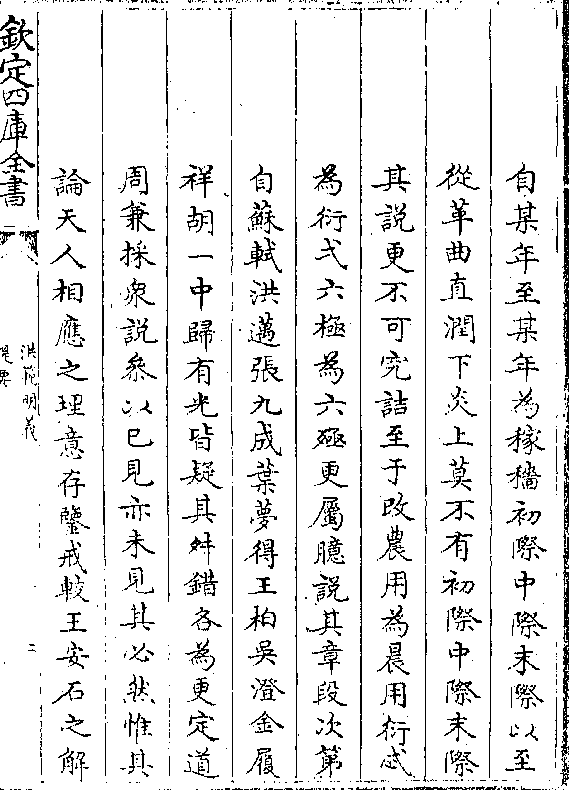 自某年至某年為稼穡初際中際末際以至
從革曲直潤下炎上莫不有初際中際末際
其說更不可究詰至于改農用為晨用衍忒
為衍弌六極為六殛更屬臆說其章段次第
自蘇軾洪邁張九成葉夢得王柏吳澄金履
祥胡一中歸有光皆疑其舛錯各為更定道
周兼採衆說叅以已見亦未見其必然惟其
論天人相應之理意存鑒戒較王安石之解
欽定四庫全書
洪範明義
提要
二